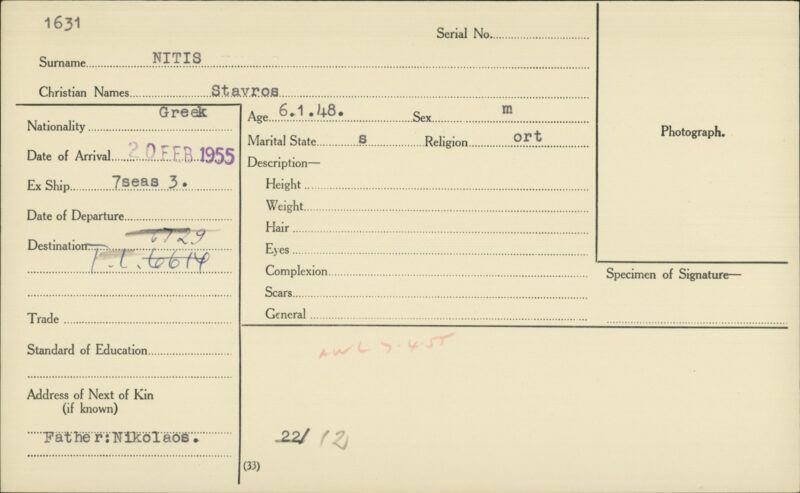 1631
Serial No.
Surname NITIS
Christian Names Stavros
Nationality Greek
Date of Arrival 20 FEB 1955
Ex Ship 7seas 3.
Date of Departure
6729
Destination
6614
Trade
Standard of Education
Address of Next of Kin
(if known)
Father:Nikolaos.
Age 6.1.48. Sex m
Marital State s Religion ort
Description—
Height
Weight
Hair
Eyes
Complexion
Scars
General
AWL 7.4.55
22/ 12
(33)
Photograph.
Specimen of Signature—